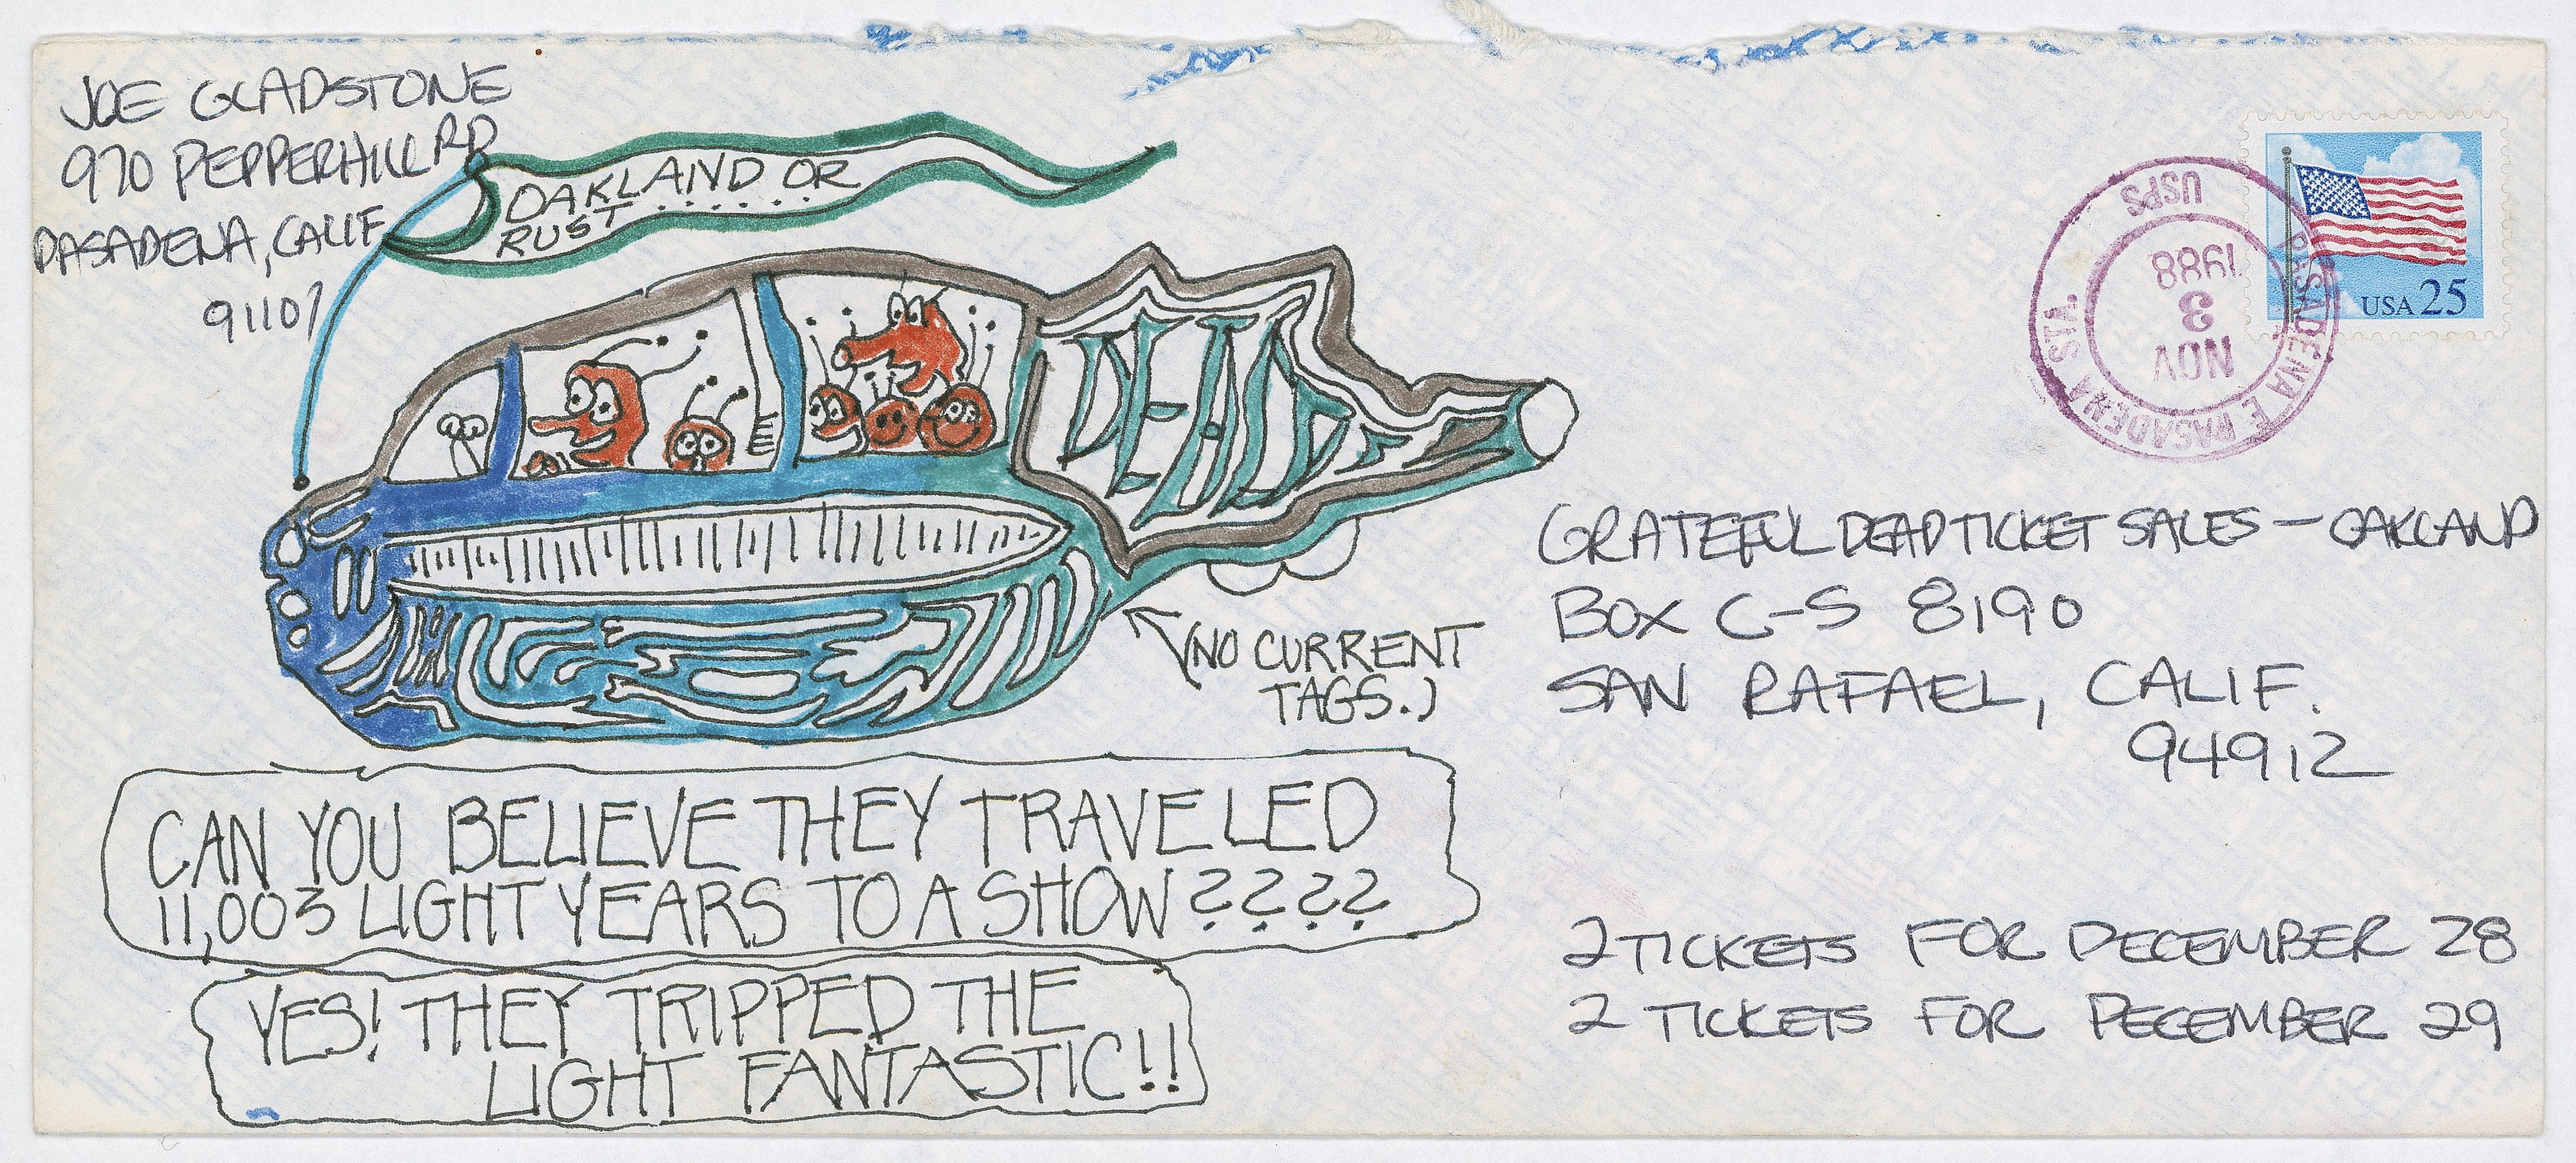 JOE GLADSTONE
970 PEPPERHILL RD
PASADENA, CALIF
91107
OAKLAND OR
RUST . . . . . .
DEAD
(NO CURRENT
TAGS.)
CAN YOU BELIEVE THEY TRAVELED
11,003 LIGHT YEARS TO A SHOW ????
YES! THEY TRIPPED THE
LIGHT FANTASTIC!!
USA 25
PASADENA E PASADENA STA.
USPS
NOV
3
1988
GRATEFUL DEAD TICKET SALES — OAKLAND
BOX C-S 8190
SAN RAFAEL, CALIF.
94912
2 TICKETS FOR DECEMBER 28
2 TICKETS FOR DECEMBER 29